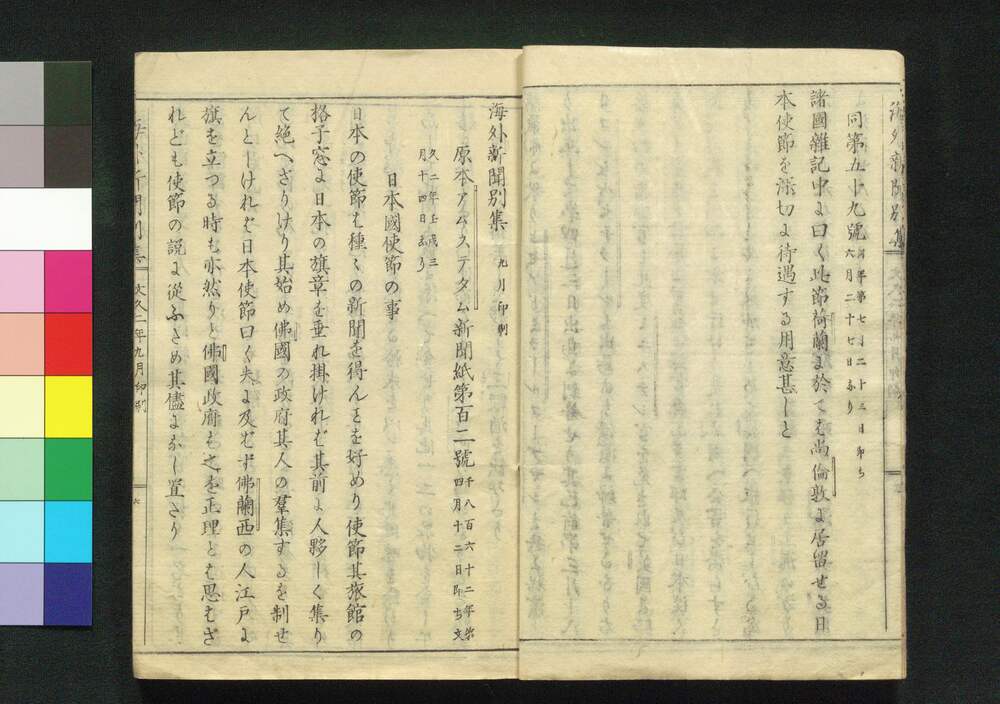 同第五十九號 同年第七月二十三日即ち
六月二十七日なり
諸國雜記中に曰く此節荷蘭に於ても尚倫敦に居留せる日
本使節を深切に待遇する用意甚しと
海外新聞別集 九月印刷
原本アムステタム新聞紙第百二號 千八百六十二年第
四月十二日即ち文
久二年壬戌三
月十四日なり
日本國使節の事
日本の使節も種々の新聞を得んとを好めり使節其旅館の
格子窓に日本の旗章を垂れ掛けれど其前に人夥しく集り
て絶へざりけり其始め佛國の政府其人の羣集するを制せ
んとしけれど日本使節曰く夫に及ばず佛蘭西の人江戸に
旗を立つる時も亦然りと佛國政府も之を正理とも思はざ
れども使節の説に從ふさめ其儘になし置さり
海外新聞別集 文久二年九月印刷
六